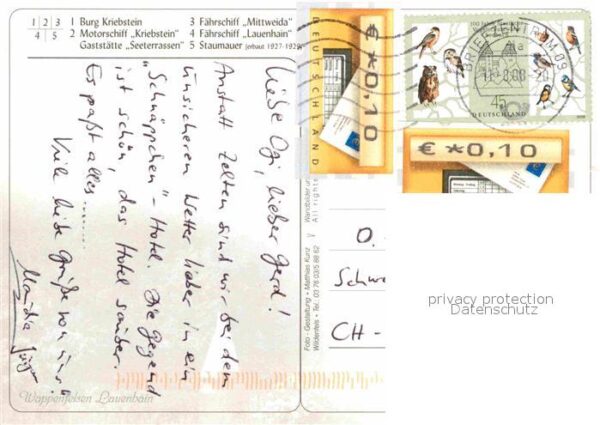 1 2 3
4 5
1 Burg Kriebstein
2 Motorschiff „Kriebstein"
Gaststätte „Seeterrassen"
3 Fährschiff „Mittweida"
4 Fährschiff „Lauenhain"
5 Staumauer (erbaut 1927-1929)
Liebe Ogi, lieber Gerd!
Anstatt Zelten sind wir bei dem
unsicheren Wetter lieber in ein
„Schnäppchen"-Hotel. Die Gegend
ist schön, das Hotel sauber.
Es paßt alles.....
Viele liebe Grüße von uns!
Wappenfelsen Lauenhain
Foto - Gestaltung • Matthias Kunz
Wildenfels • Tel.: 03 76 03/5 88 62
DEUTSCHLAND
€*0,10
100 Jahre
BRIEFZENTRUM 09
45
DEUTSCHLAND
€*0,10
D.
Schwe
CH-
privacy protection
Datenschutz